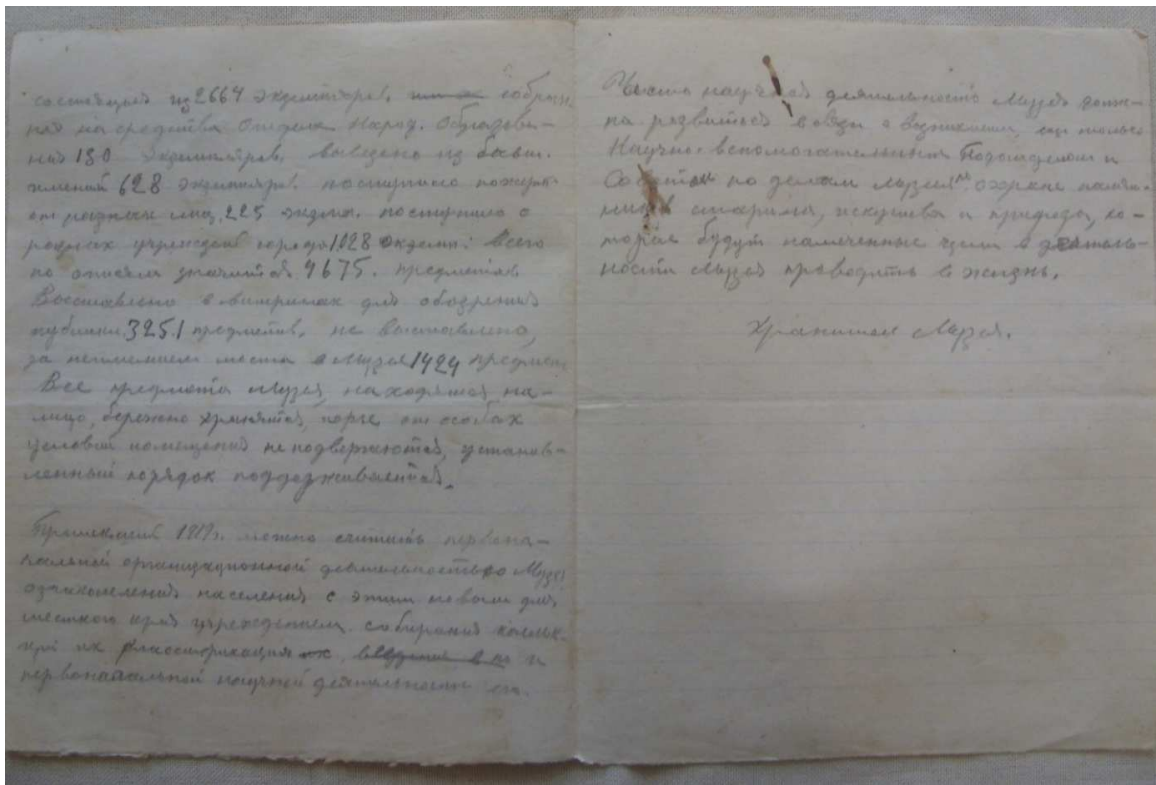 состоящая из 2664 экземпляров, собран-
ная на средства Отдела Народ. Образова-
ния 130 экземпляров, вывезено из бывш.
имений 628 экземпляров. поступило пожертв.
от разных лиц 225 экземп. поступило с
разных учреждений города 1028 экземп. Всего
по описям значится 4675. предметов
Выставлено в витринах для обозрения
публики 3251 предметов, не выставлено,
за неимением места в Музее 1424 предмет.
Все предметы Музея, находятся на-
лицо, бережно хранятся, порче от особых
условий помещения не подвергаются, установ-
ленный порядок поддерживается.
1919г. можно считать первона-
чальной организационной деятельностью Музея
ознакомления населения с этим новым для
местного края учреждением собирания коллек-
ций их классификация введения в и
первоначальной научной деятельности
Чисто научная деятельность Музея долж-
на развиться в связи с возникшим, еще только
Научно-вспомогательным Подотделом и
Советом по делам музея охране памят-
ников старины, искусства и природы, ко-
торые будут намеченные цели в деятель-
ности Музея проводить в жизнь.
Хранитель Музея.